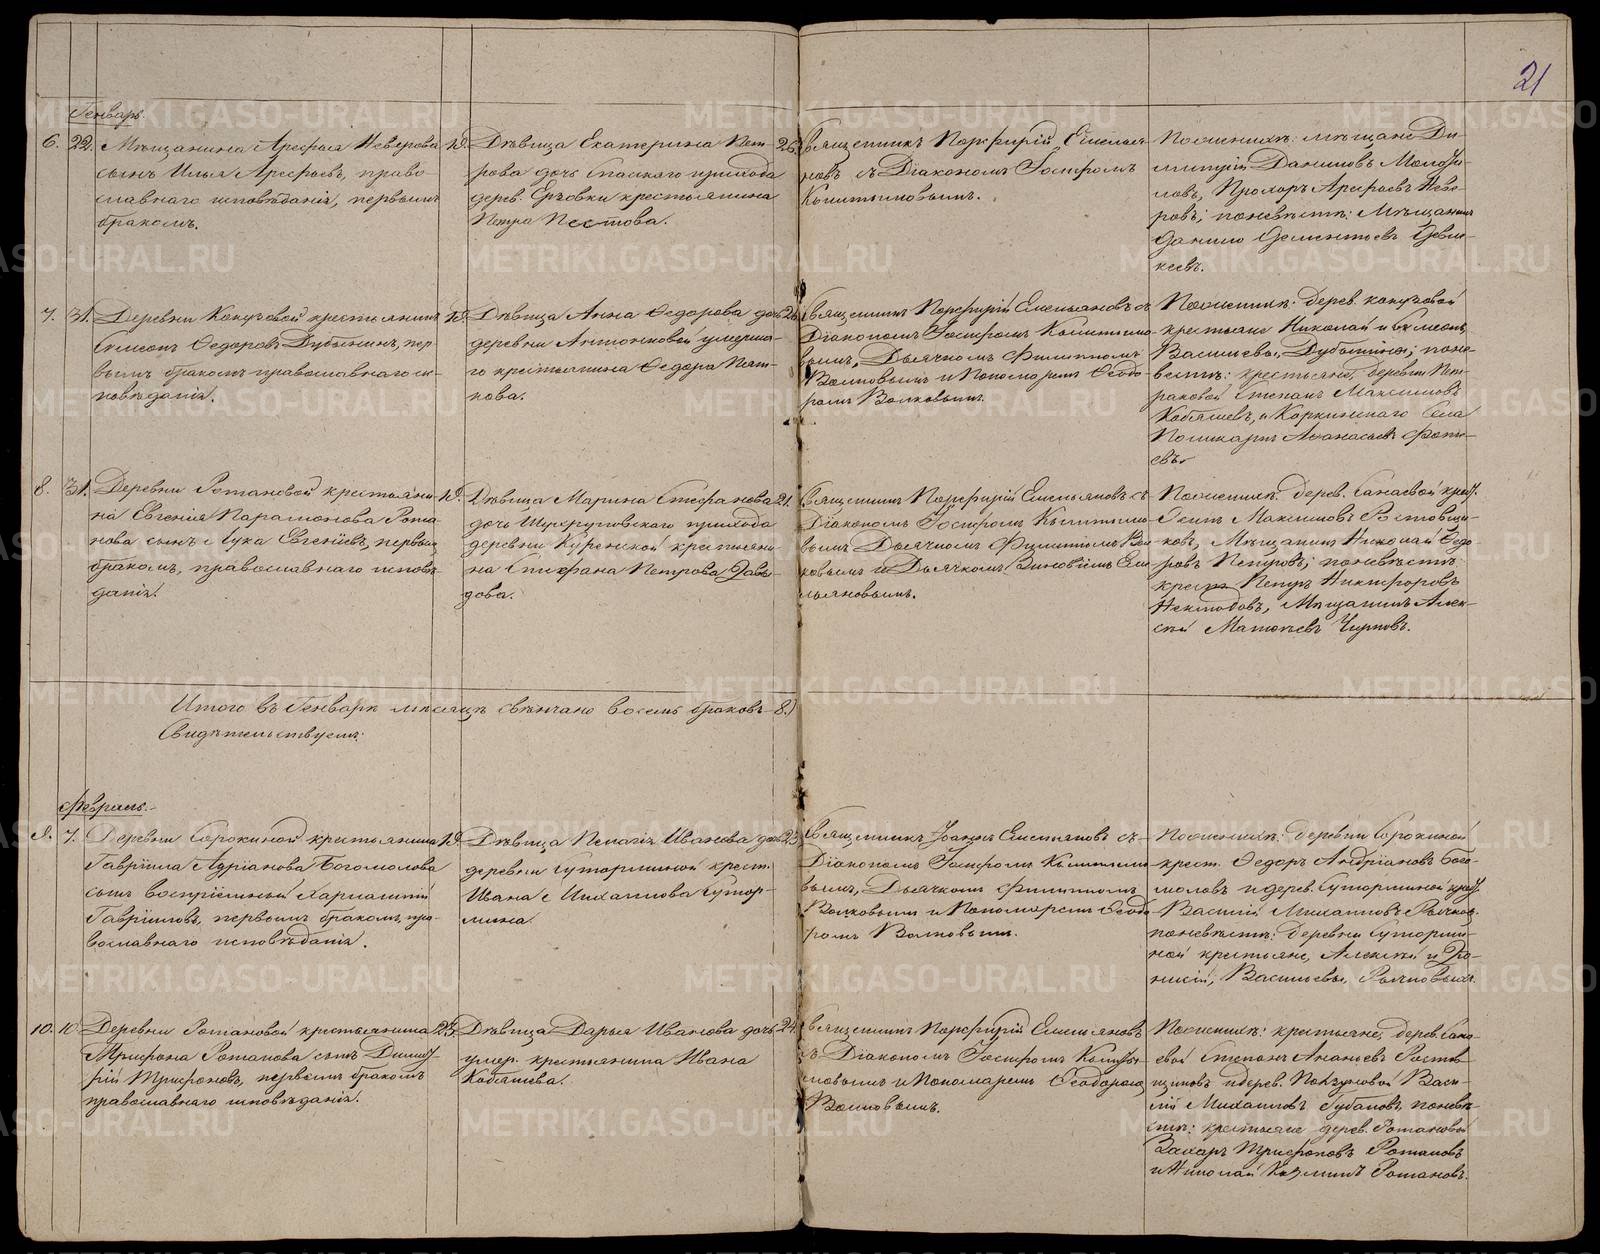 21
Генварь.
6. 22. Мѣщанина Арефья Неверова
сынъ Илья Арефьевъ, право-
славнаго исповѣданія, первымъ
бракомъ.
19. Дѣвица Екатерина Пет-
рова дочь Спаскаго прихода
дерев. Ерзовки крестьянина
Петра Пестова.
26. Священникъ Порфирій Емелья-
новъ съ Діакономъ Іосифомъ
Кыштымовымъ.
Поженихѣ: мѣщане Ди-
митрій Даниловъ
Прохоръ Арефьевъ Неве-
ровъ; поневѣстѣ: Мѣщанинъ
Данило Дементьевъ
7. 31. Деревни крестьянинъ
Симеонъ Ѳедоровъ Дубынинъ, пер-
вымъ бракомъ православнаго ис-
повѣданія.
19. Дѣвица Анна Ѳедорова дочь
деревни Антоновой умерша-
го крестьянина Ѳедора Пят-
кова.
Священникъ Порфирій Емельяновъ съ
Діакономъ Іосифомъ Кыштымо-
вымъ, Дьячкомъ Филиппомъ
Волковымъ и Пономаремъ Ѳеодо-
ромъ Волковымъ.
Поженихѣ: дерев.
крестьяне Николай и Симеонъ
Васильевы, Дубынины; поне-
вестѣ: крестьяне, деревни Пет-
раковой Степанъ Максимовъ
Кабашевъ, и Коркинскаго села
Поликарпъ Афанасьевъ Фоти-
евъ.
8. 31. Деревни Ротановой крестьяни-
на Евгенія Парамонова Рота-
нова сынъ Лука Евгеніевъ, первымъ
бракомъ, православнаго исповѣ-
данія.
19. Дѣвица Марина Стефанова
дочь прихода
деревни Куренской крестьяни-
на Стефана Петрова Давы-
дова.
21. Священникъ Порфирій Емельяновъ съ
Діакономъ Іосифомъ Кыштымо-
вымъ Дьячкомъ Филиппомъ Вол-
ковымъ и Дьячкомъ Зиновіемъ Еме-
льяновымъ.
Поженихѣ. дерев. крест.
Максимовъ Ростовщи-
ковъ, Мѣщанинъ Николай Ѳедо-
ровъ поневѣстѣ:
крест. Петръ Никифоровъ
Мѣщанинъ Алек-
сѣй Матвѣевъ
Итого въ Генварѣ мѣсяцѣ свѣнчано восемь браковъ 8.)
Свидѣтельствуемъ:
Февраль.
9. 7. Деревни Сорокиной крестьянина
Гавріила Адріанова Богомолова
сынъ воспріемный Харлампій
Гавріиловъ, первымъ бракомъ, пра-
вославнаго исповѣданія.
19. Дѣвица Пелагія Иванова дочь
деревни Сутормшной крест.
Ивана Михаилова Сутор-
мина.
23. Священникъ Іоаннъ Емельяновъ съ
Діакономъ Іосифомъ Кыштымо-
вымъ, Дьячкомъ Филиппомъ
Волковымъ и Пономаремъ Ѳеодо-
ромъ Волковымъ.
Поженихѣ. деревни Сорокиной
крест. Ѳедоръ Андріановъ Бого-
моловъ и дерев. Суторминой крест.
Василій Михаиловъ Рычков.
поневѣстѣ: деревни Сутормин-
ной крестьяне, Алексѣй и Діо-
нисій, Васильевы, Рычковы.
10. 10. Деревни Ротановой крестьянина
Трифона Ротанова сынъ Димит-
рій Трифоновъ, первымъ бракомъ
православнаго исповѣданія.
23. Дѣвица Дарья Иванова дочь
умер. крестьянина Ивана
Кабашева.
24. Священникъ Порфирій Емельяновъ
съ Діакономъ Іосифомъ Кышты-
мовымъ и Пономаремъ Ѳеодоромъ
Волковымъ.
Поженихѣ: крестьяне, дерев.
Степанъ Ананьевъ Ростов-
щиковъ и дерев. Васи-
лій Михаиловъ Губановъ, поневѣ-
стѣ: крестьяне дерев. Ротановой
Захаръ Трифоновъ Ротановъ
и Николай Козминъ Ротановъ.
METRIKI.GASO-URAL.RU